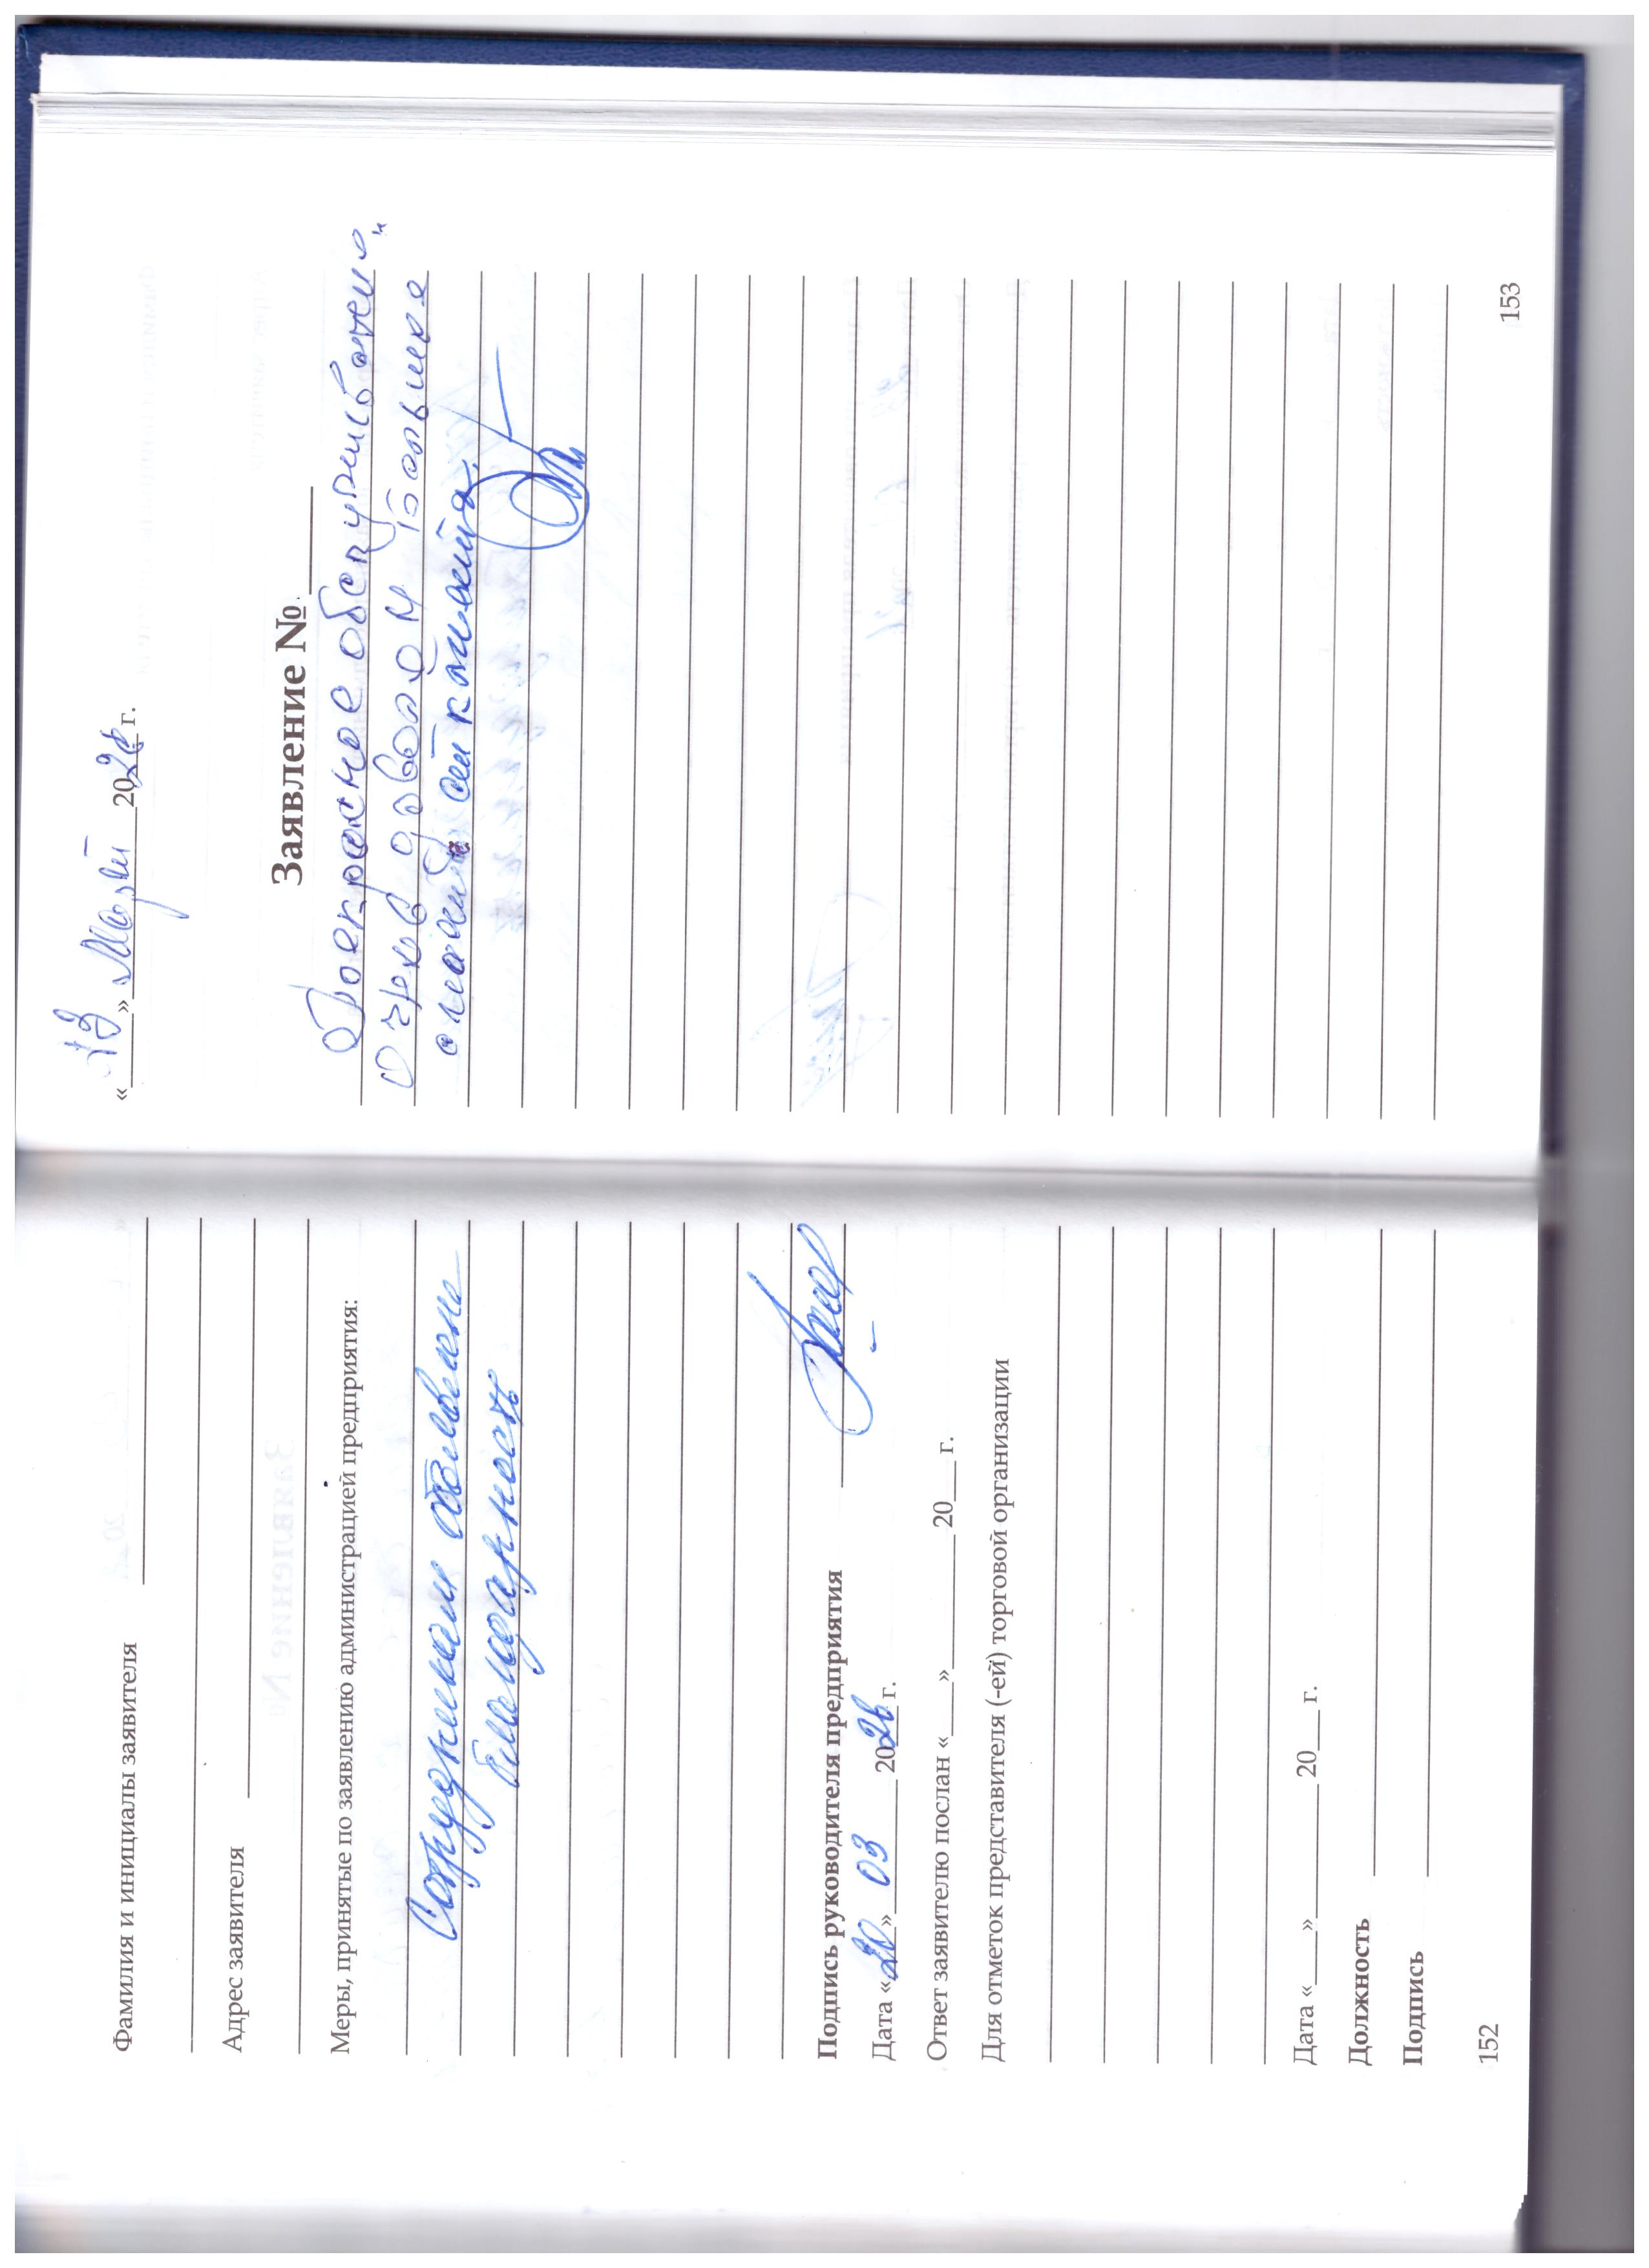 Фамилия и инициалы заявителя
Адрес заявителя
Меры, принятые по заявлению администрацией предприятия:
Сотрудникам объявлена
благодарность
Подпись руководителя предприятия
Дата «20» 03 2026 г.
Ответ заявителю послан «___» ________ 20___ г.
Для отметок представителя (-ей) торговой организации
Дата «___» ________ 20___ г.
Должность
Подпись
152
«13» 202 г.
Заявление № ____
Прекрасное обслуживание
Очень большое
спасибо
153